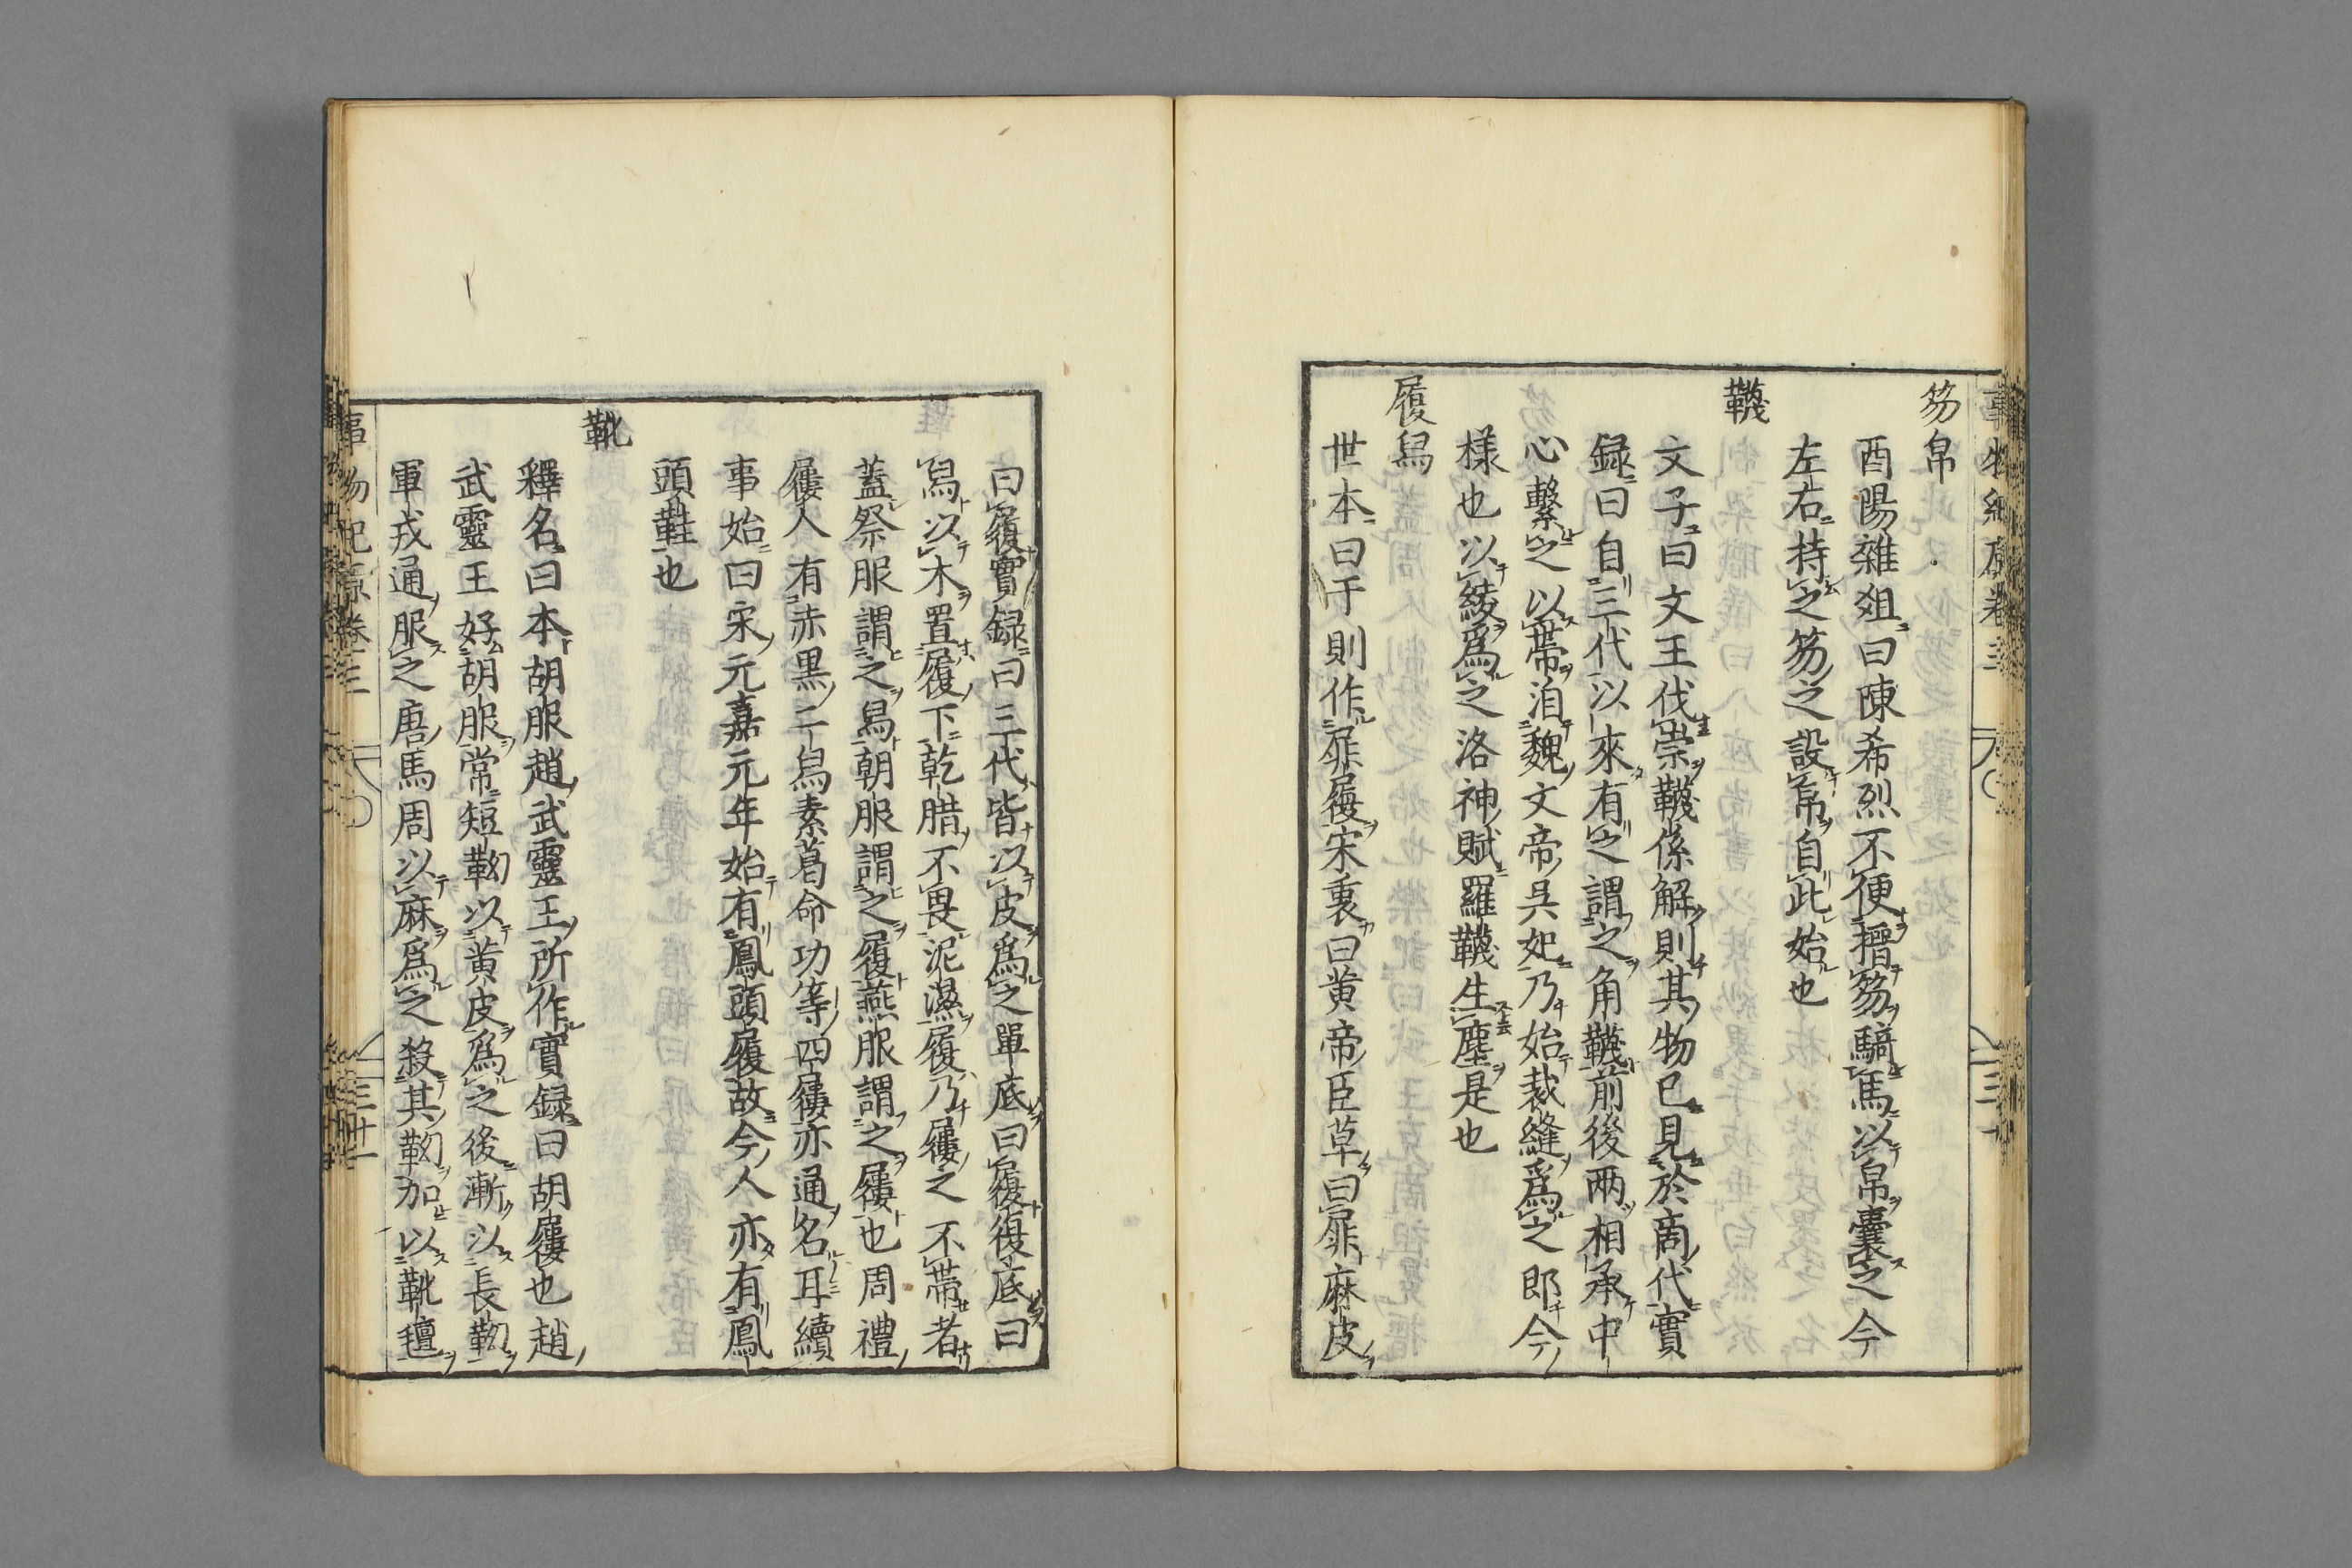 事物紀原卷三
笏帛
酉陽雜俎曰陳希烈不便搢笏騎馬以帛囊之今
左右持之笏之設帛自此始也
韈
文子曰文王伐崇韈係解則其物已見於商代實
録曰自三代以來有之謂之角韈前後两相承中
心繫之以帶洎魏文帝吳妃乃始裁縫爲之即今
様也以綾爲之洛神賦羅韈生塵是也
履舄
世本曰于則作屝履宋衷曰黄帝臣草曰屝麻皮
曰履實録曰三代皆以皮爲之單底曰履複底曰
舄以木置履下乾腊不畏泥濕履乃屨之不帶者
蓋祭服謂之舄朝服謂之履燕服謂之屨也周禮
屨人有赤黒二舄素葛命功等四屨亦通名耳續
事始曰宋元嘉元年始有鳳頭履故今人亦有鳳
頭鞋也
靴
釋名曰本胡服趙武靈王所作實録曰胡屨也趙
武靈王好胡服常短靿以黄皮爲之後漸以長靿
軍戎通服之唐馬周以麻爲之殺其靿加以靴氊
事物紀原卷三 三十一